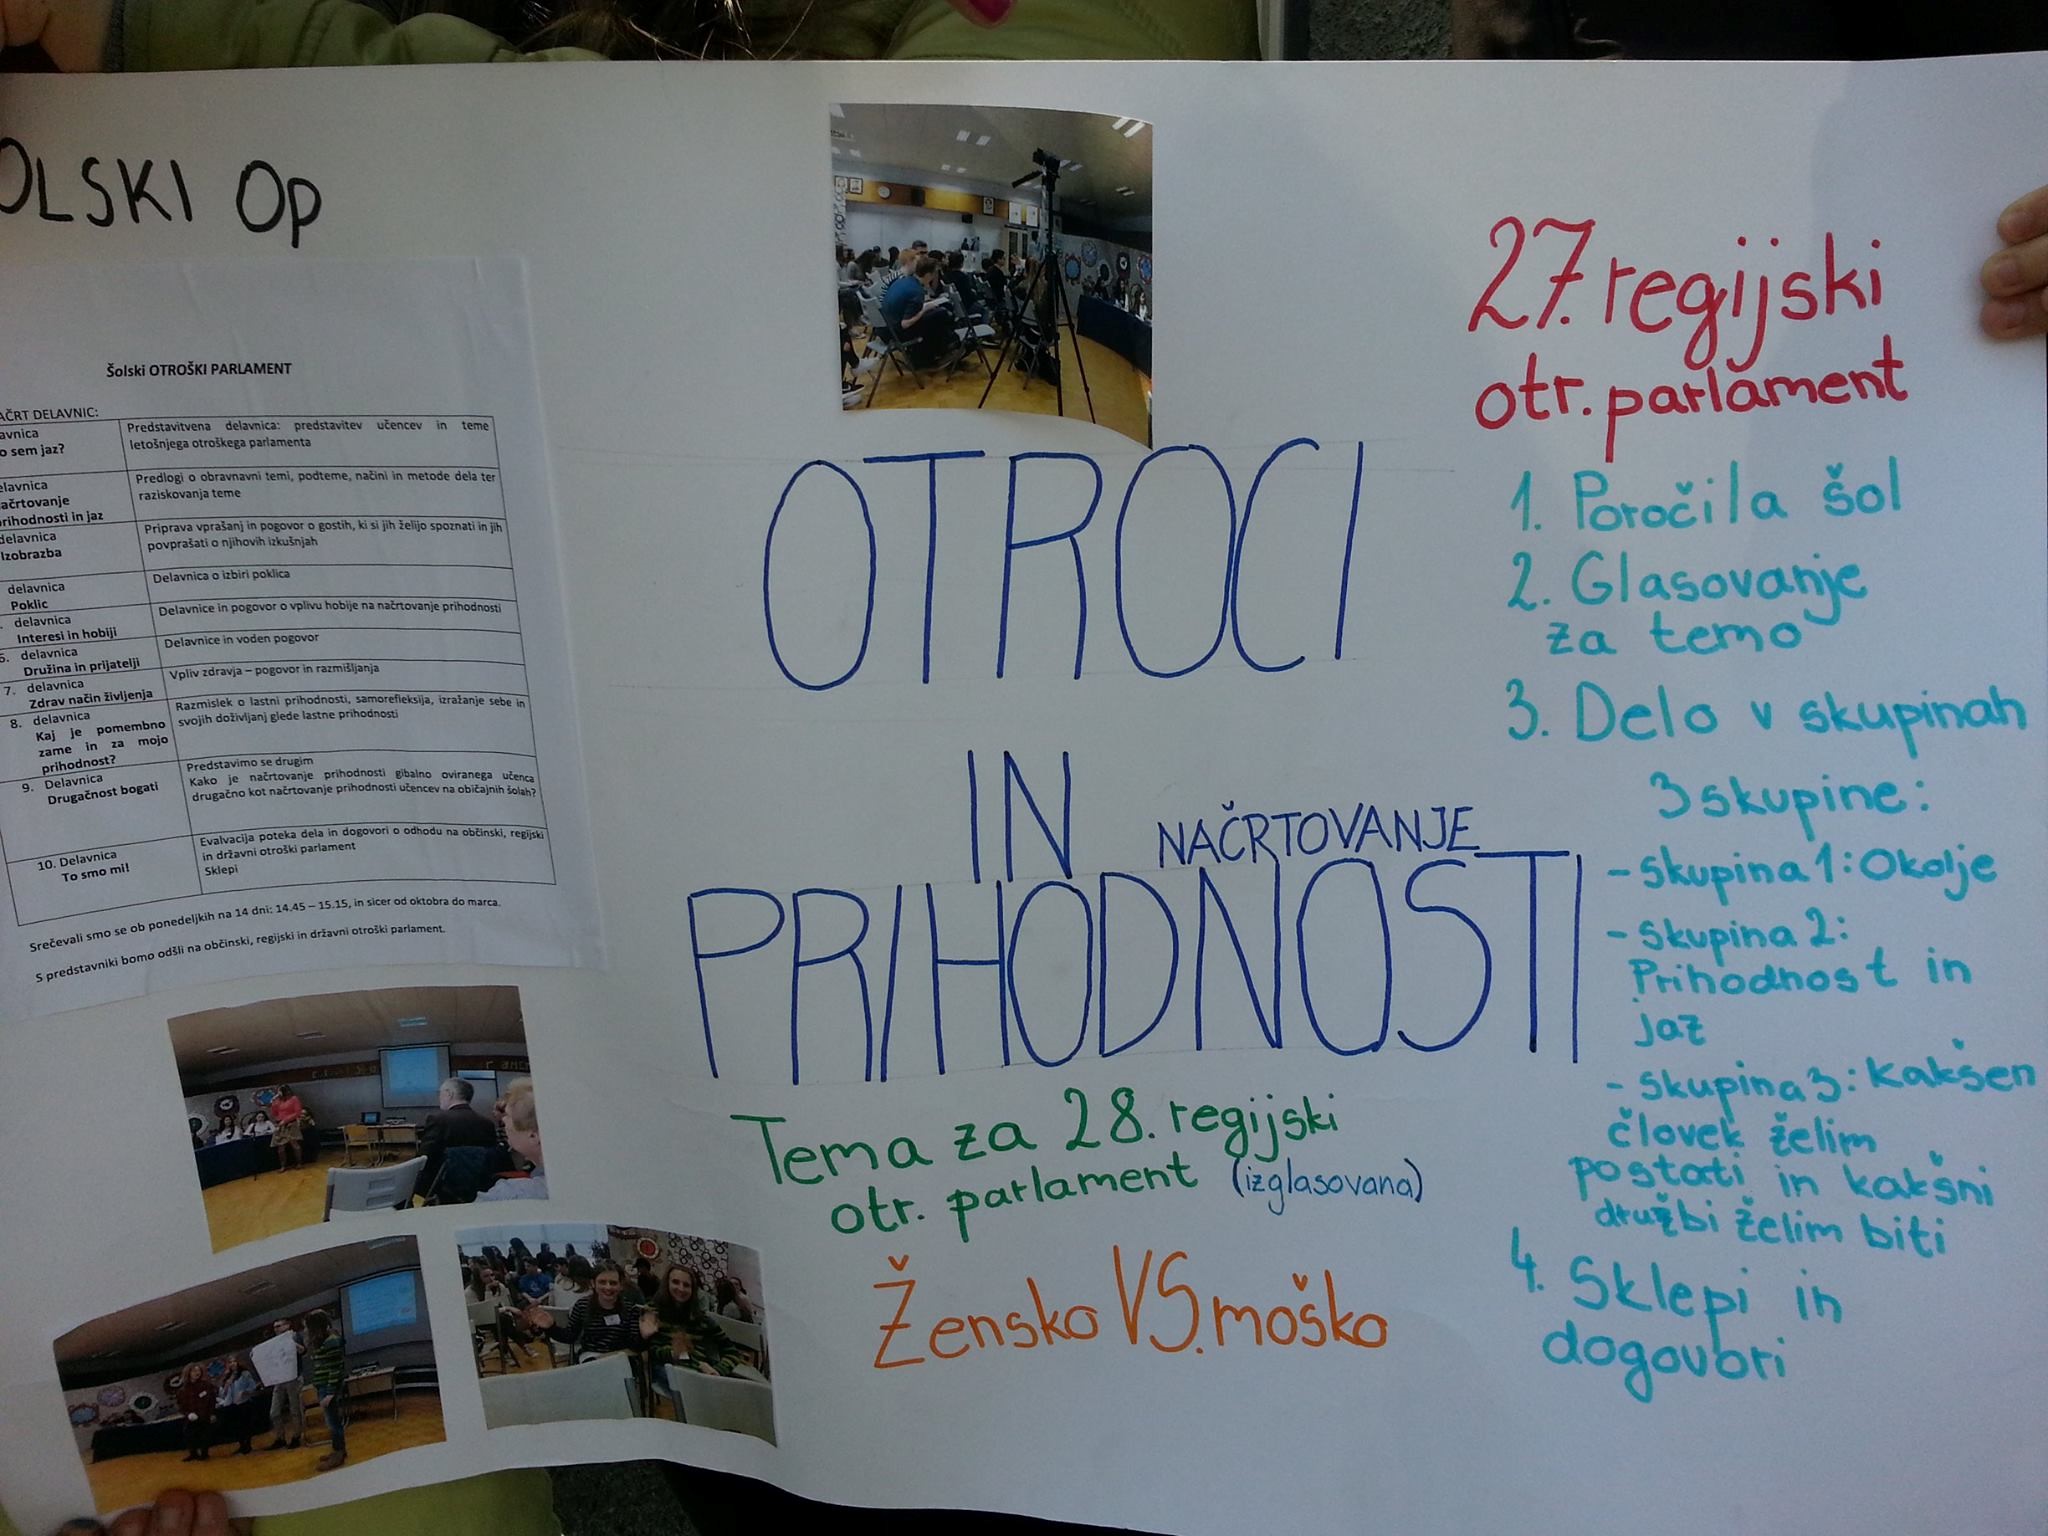 OLSKI OP
Šolski OTROŠKI PARLAMENT
AČRT DELAVNIC:
avnica
o sem jaz?
Predstavitvena delavnica: predstavitev učencev in teme
letošnjega otroškega parlamenta
elavnica
ačrtovanje
rihodnosti in jaz
Predlogi o obravnavni temi, podteme, načini in metode dela ter
raziskovanja teme
delavnica
Izobrazba
Priprava vprašanj in pogovor o gostih, ki si jih želijo spoznati in jih
povprašati o njihovih izkušnjah
delavnica
Poklic
Delavnica o izbiri poklica
. delavnica
Interesi in hobiji
Delavnice in pogovor o vplivu hobije na načrtovanje prihodnosti
6. delavnica
Družina in prijatelji
Delavnice in voden pogovor
7. delavnica
Zdrav način življenja
Vpliv zdravja – pogovor in razmišljanja
8. delavnica
Kaj je pomembno
zame in za mojo
prihodnost?
Razmislek o lastni prihodnosti, samorefleksija, izražanje sebe in
svojih doživljanj glede lastne prihodnosti
9. Delavnica
Drugačnost bogati
Predstavimo se drugim
Kako je načrtovanje prihodnosti gibalno oviranega učenca
drugačno kot načrtovanje prihodnosti učencev na običajnih šolah?
10. Delavnica
To smo mi!
Evalvacija poteka dela in dogovori o odhodu na občinski, regijski
in državni otroški parlament
Sklepi
Srečevali smo se ob ponedeljkih na 14 dni: 14.45 – 15.15, in sicer od oktobra do marca.
S predstavniki bomo odšli na občinski, regijski in državni otroški parlament.
OTROCI
IN NAČRTOVANJE
PRIHODNOSTI
Tema za 28. regijski
otr. parlament (izglasovana)
Žensko VS. moško
27. regijski
otr. parlament
1. Poročila šol
2. Glasovanje
za temo
3. Delo v skupinah
3 skupine:
- skupina 1: Okolje
- skupina 2:
Prihodnost in
jaz
- skupina 3: Kakšen
človek želim
postati in kakšni
družbi želim biti
4. Sklepi in
dogovori